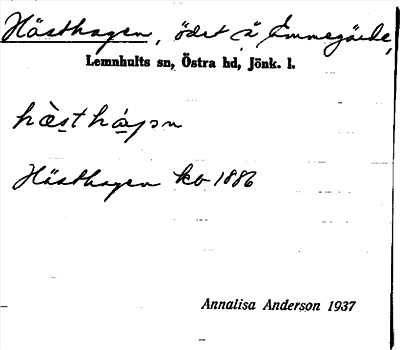 Hästhagen, ödet å Emmegärde,
Lemnhults sn, Östra hd, Jönk. l.
hästhágən
Hästhagen kb 1886
Annalisa Anderson 1937